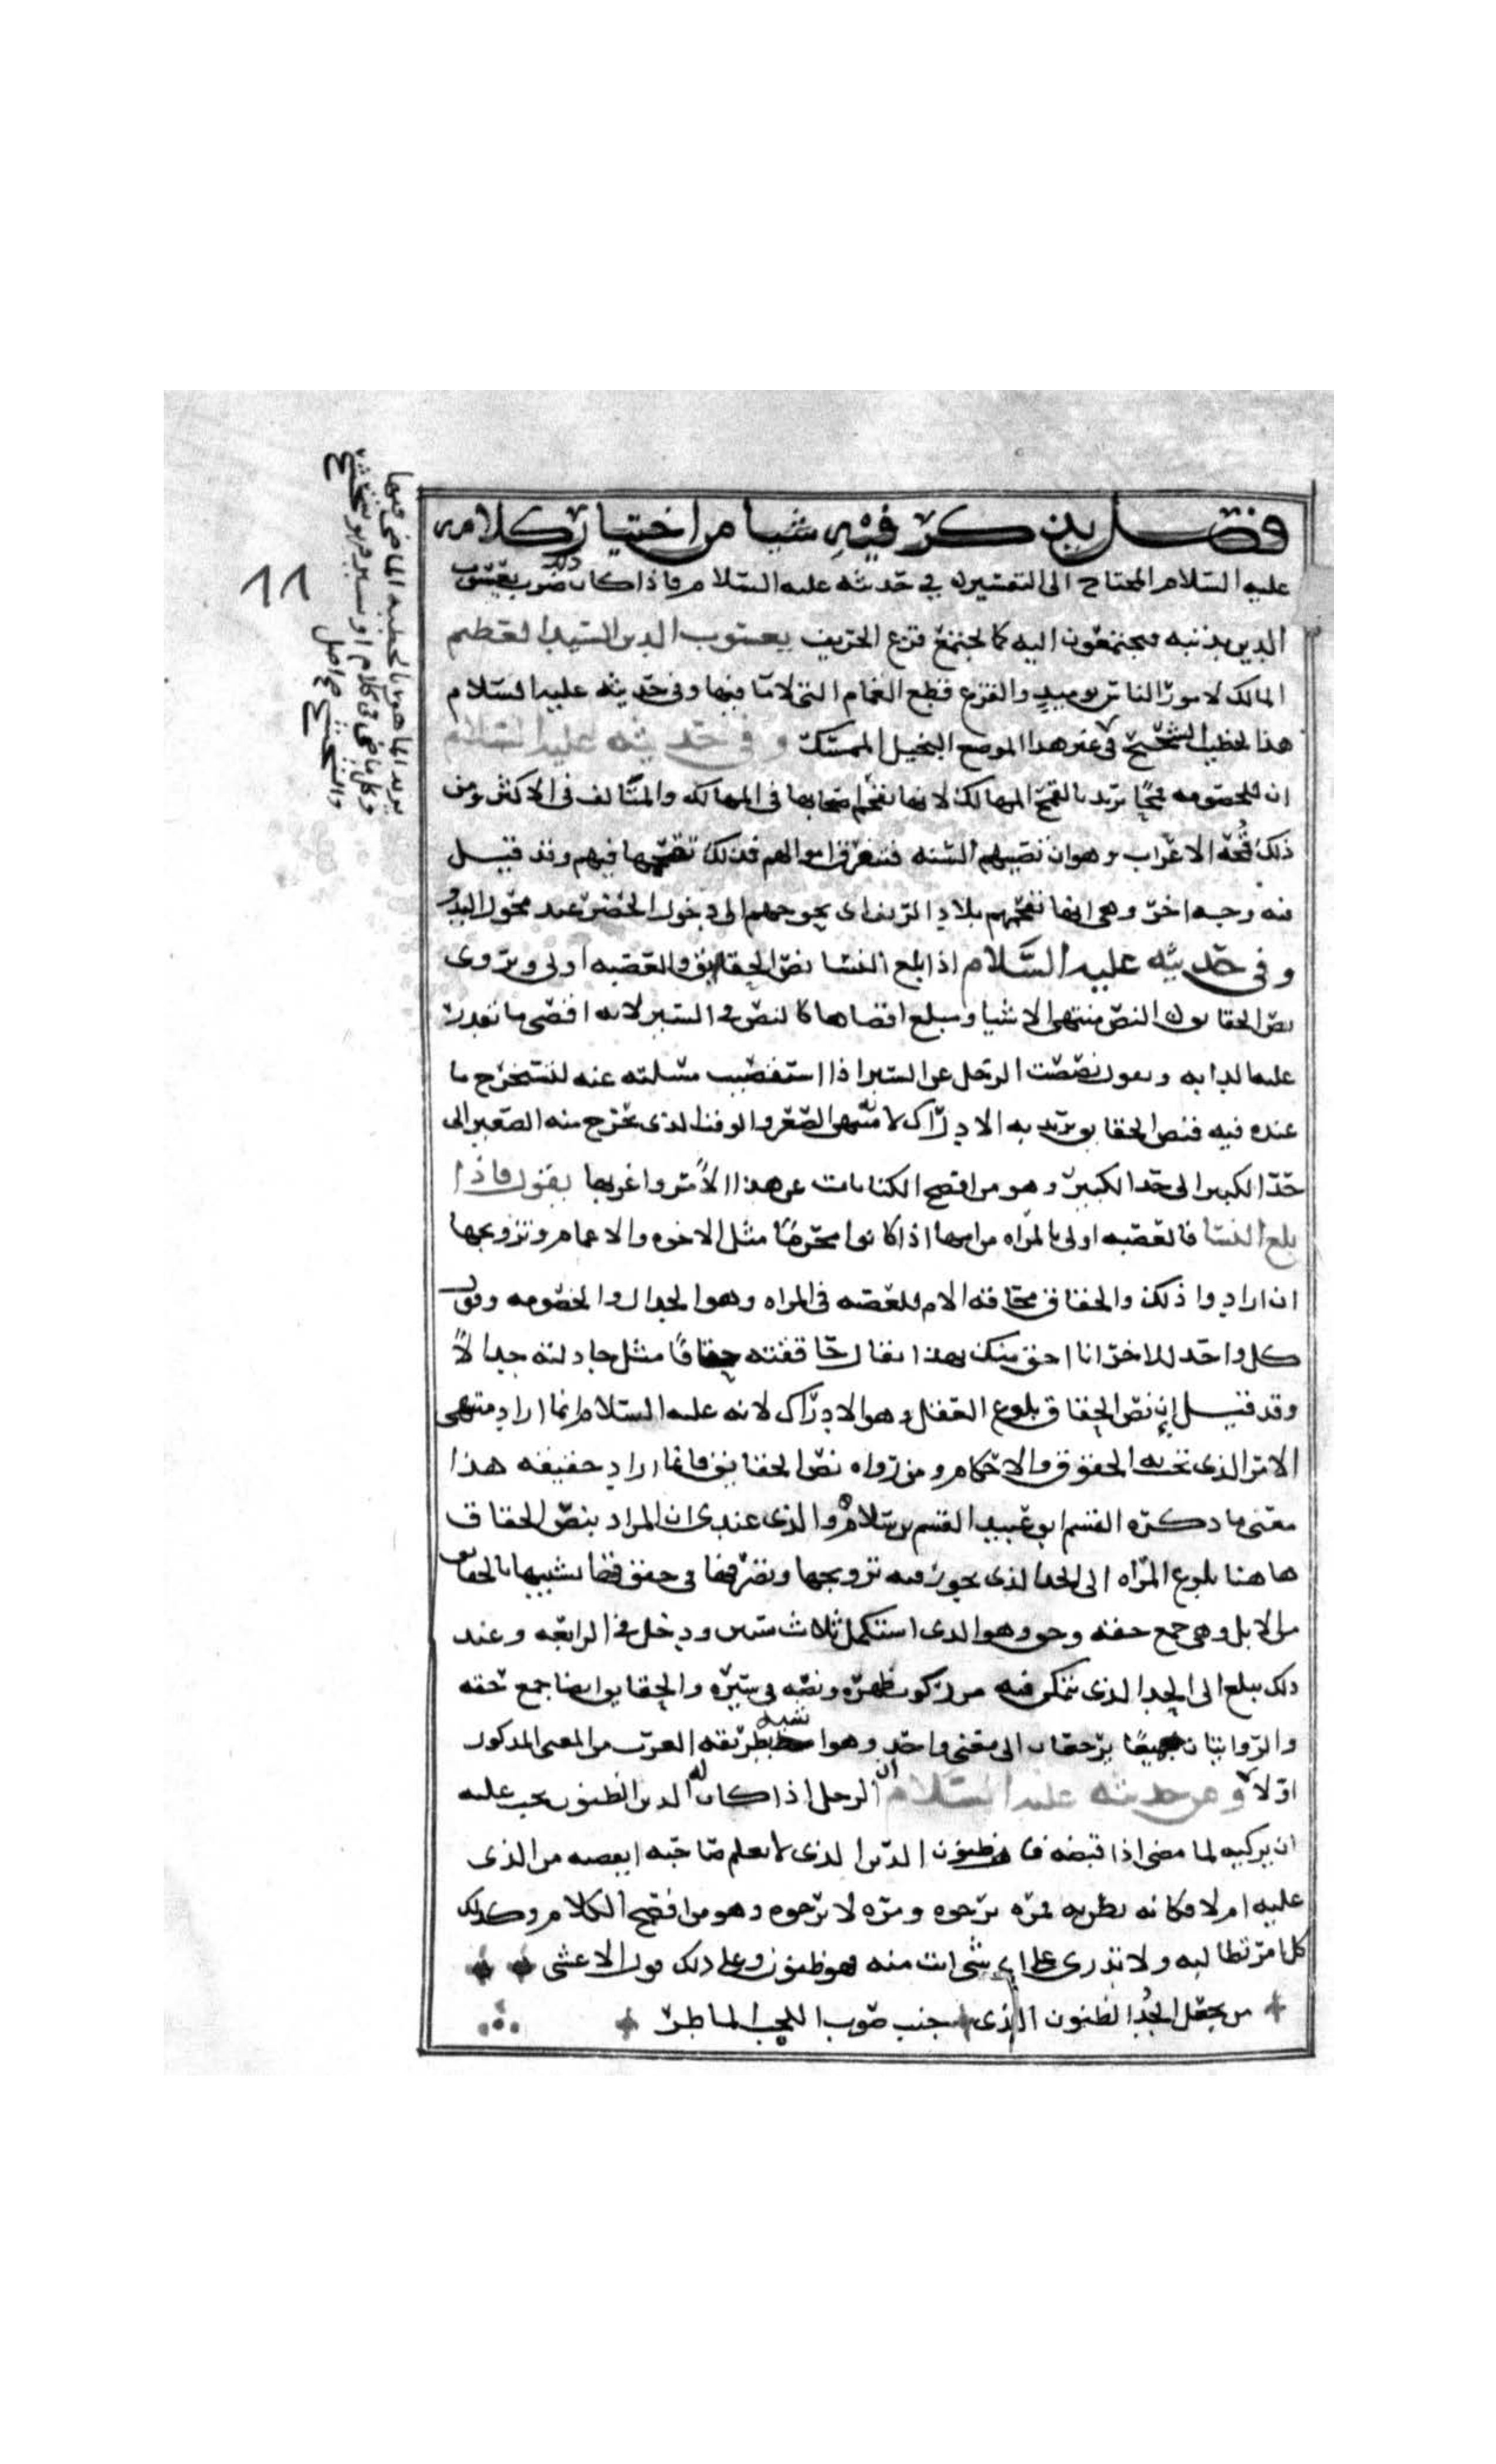 فصل يذكر فيه شيا من اختيار كلامه
عليه السلام المحتاج الى التفسير في حديثه عليه السلام فاذا كان ذلك ضرب يعسوب
الدين بذنبه فيجتمعون اليه كما يجتمع قزع الخريف يعسوب الدين السيد العظيم
المالك لامور الناس يوميذ والقزع قطع الغمام التي لا ما فيها وفي حديثه عليه السلام
هذا الخطيب الشحشح في غير هذا الموضع البخيل الممسك وفي حديثه عليه السلام
ان للخصومه قحما يريد بالقحم المهالك لانها تقحم اصحابها في المهالك والمتالف في الاكثر ومن
ذلك قحمة الاعراب وهو ان تصيبهم السنه فتتعرق اموالهم فذلك تقحمها فيهم وقد قيل
فيه وجه اخر وهي انها تقحمهم بلاد الريف اى يحوجهم الى دخول الحضر عند محول البدو
وفي حديثه عليه السلام اذا بلغ النسا نص الحقايق فالعصبه اولى ويروى
نص الحقاق والنص منتهى الاشيا ومبلغ اقصاها كالنص في السير لانه اقصى ما تقدر
عليه الدابه وتقول نصصت الرجل عن الشي اذا استقصيت مسلته عنه لتستخرج ما
عنده فيه فنص الحقايق يريد به الادراك لانه منتهى الصغر والوقت الذى يخرج منه الصغير الى
حد الكبير الى حد الكبير وهو من افصح الكنايات عن هذا الامر واغربها يقول فاذا
بلغ النسا فالعصبه اولى بالمراه من امها اذا كانوا محرما مثل الاخوه والاعمام وتزويجها
ان ارادوا ذلك والحقاق محاقه الام للعصبه في المراه وهو الجدال والخصومه وقول
كل واحد للاخر انا احق منك بهذا يقال حاققته حقاقا مثل جادلته جدالا
وقد قيل ان نص الحقاق بلوغ العقل وهو الادراك لانه عليه السلام انما اراد منتهى
الامر الذى تجب به الحقوق والاحكام ومن رواه نص الحقايق فانما اراد حقيقه هذا
معنى ما ذكره القسم ابو عبيد القسم بن سلام والذى عندى ان المراد بنص الحقاق
هاهنا بلوغ المراه الى الحد الذى يجوز فيه تزويجها وتصرفها في حقوقها تشبيها بالحقاق
من الابل وهي جمع حقه وحق وهو الذى استكمل ثلاث سنين ودخل في الرابعه وعند
ذلك يبلغ الى الحد الذى يتمكن فيه من ركوب ظهره ونصه في سيره والحقايق ايضا جمع حقه
والروايتان جميعا يرجعان الى معنى واحد وهو اشبه بطريقه العرب من المعنى المذكور
اولا وعن حديثه عليه السلام ان الرجل اذا كان له الدين الظنون يجب عليه
ان يزكيه لما مضى اذا قبضه فالظنون الذى لا يعلم صاحبه ايقبضه من الذى
عليه ام لا فكانه يظن به فمره يرجوه ومره لا يرجوه وهو من افصح الكلام وكذلك
كل امر تطالبه ولا تدرى على اى شى انت منه فهو ظنون وعلى ذلك قول الاعشى
من يجعل الجد الظنون الذى جنب صوب اللجب الماطر
يريد الماهر بالخطبه الماضي فيها
وكل ماض في كلام او سير فهو شحشح
والشحشح
صح اصل
11